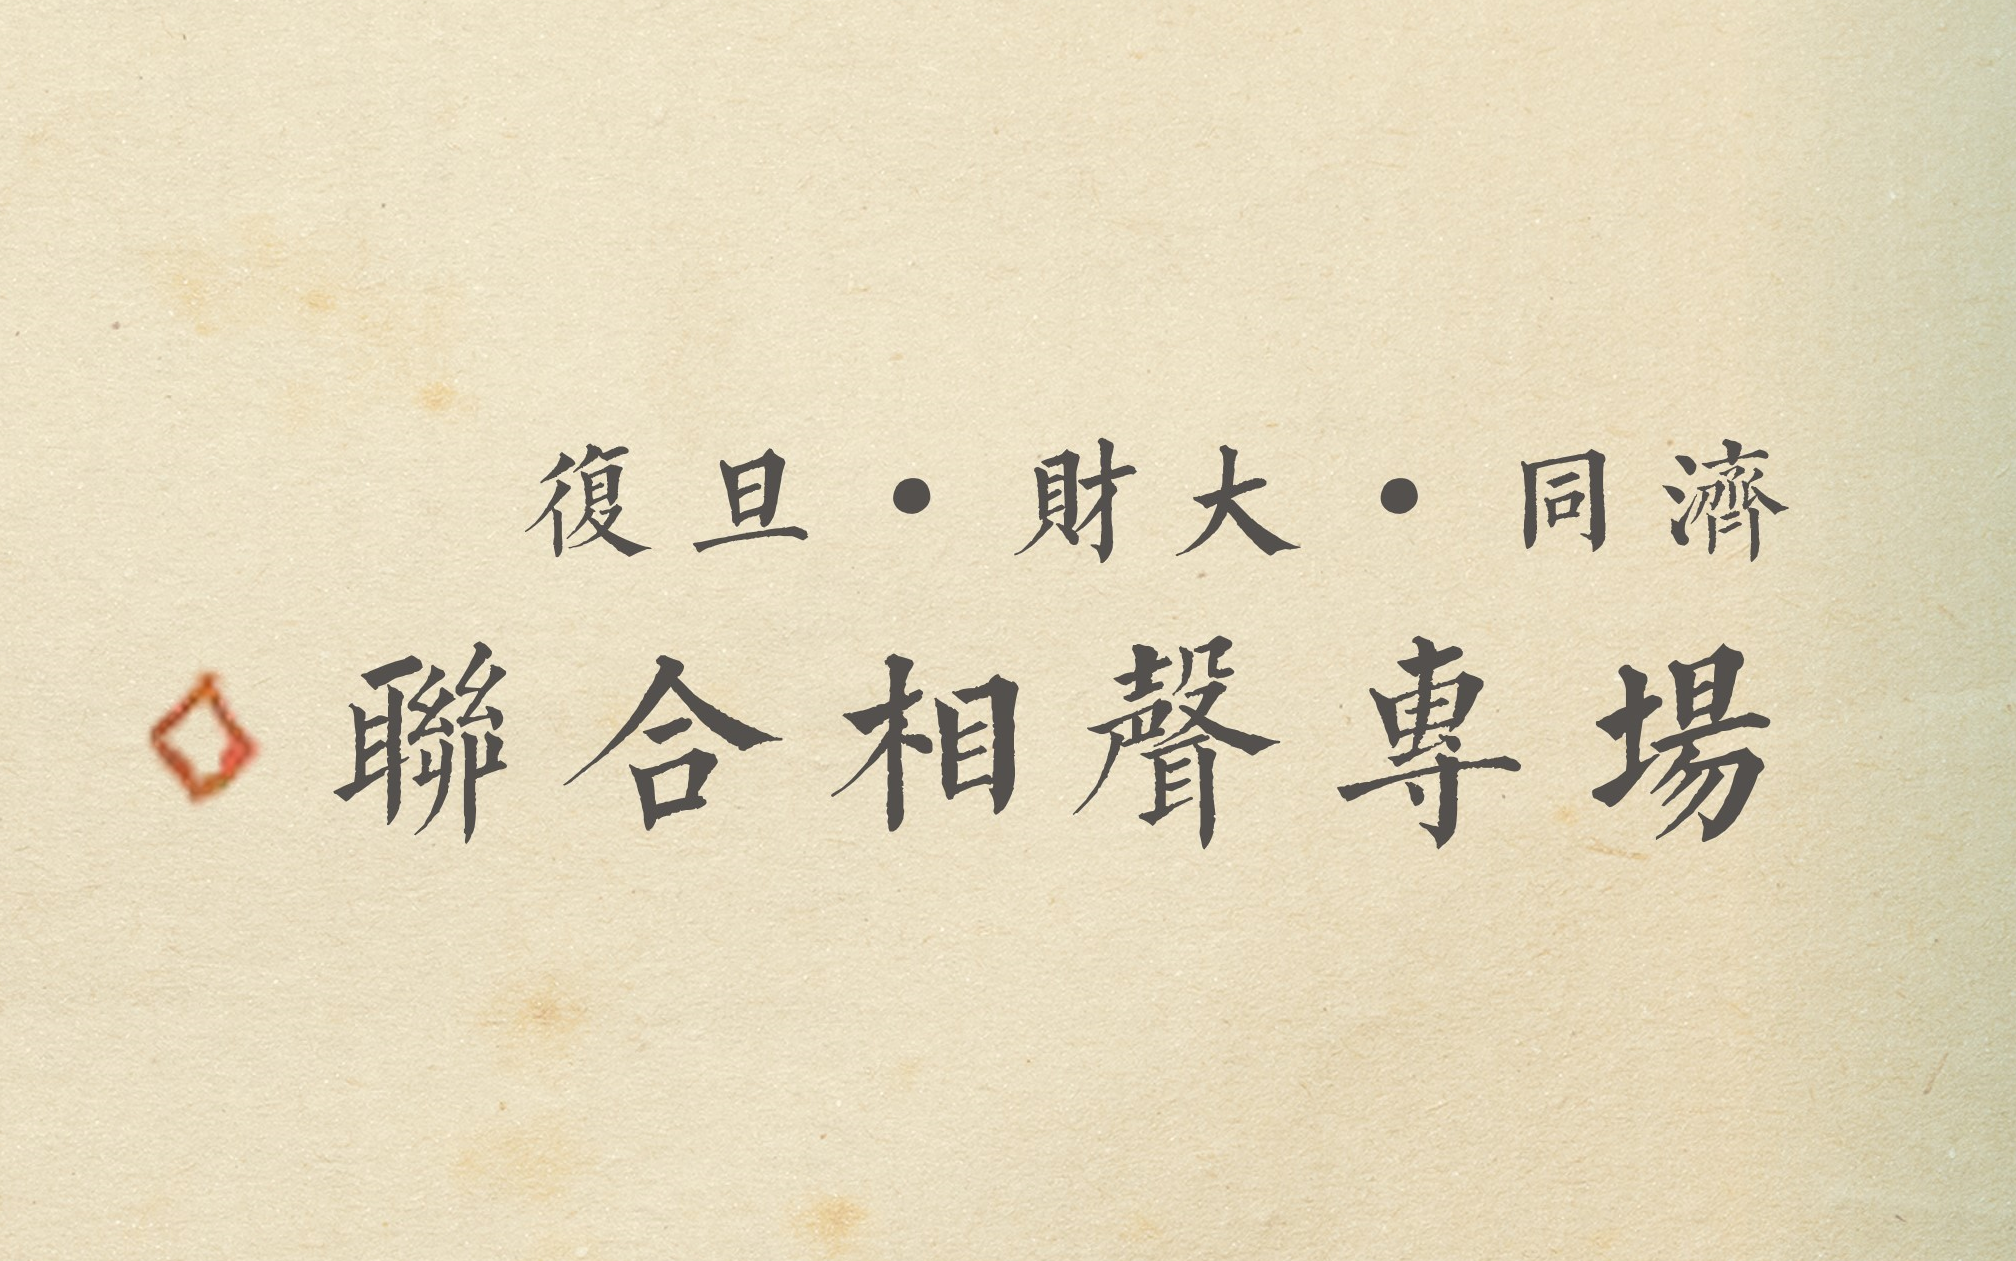 復旦·財大·同濟
聯合相聲專場